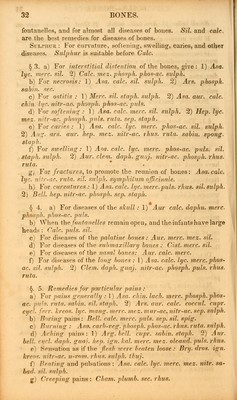 32 BONES.
fontanelles, and for almost all diseases of bones. Sil. and calc.
are the best remedies for diseases of bones.
SULPHUR: For curvature, softening, swelling, caries, and other
diseases. Sulphur is suitable before Calc.
§ 3. a) For interstitial distention of the bones, give: 1) Asa.
lyc. merc. sil. 2) Calc. mez. phosph. phos-ac. sulph.
b) For necrosis: 1) Asa. calc. sil. sulph. 2) Ars. phosph.
sabin. sec.
c) For ostitis: 1) Merc. sil. staph. sulph. 2) Asa. aur. calc.
chin. lyc. nitr-ac. phosph. phos-ac. puls.
d) For softening: 1) Asa. calc. merc. sil. sulph. 2) Hep. lyc.
mez. nitr-ac. phosph. puls. ruta. sep. staph.
e) For caries: 1) Asa. calc. lyc. merc. phos-ac. sil. sulph.
2) Ang. ars. aur. hep. mez. nitr-ac. rhus. ruta. sabin. spong.
staph.
f) For swelling: 1) Asa. calc. lyc. merc. phos-ac. puls. sil.
staph. sulph. 2) Aur. clem. daph. guaj. nitr-ac. phosph. rhus.
ruta.
g) For fractures, to promote the reunion of bones: Asa. calc.
lyc. nitr-ac. ruta. sil. sulph. symphitum officinale.
h) For curvatures: 1) Asa. calc. lyc. merc. puls. rhus. sil. sulph.
2) Bell. hep. nitr-ac. phosph. sep. staph.
§ 4. a) For diseases of the skull: 1) Aur. calc. daphn. merc.
phosph. phos-ac. puls.
b) When the fontanelles remain open, and the infants have large
heads: Calc. puls. sil.
c) For diseases of the palatine bones: Aur. merc. mez. sil.
d) For diseases of the submaxillary bones: Cist. merc. sil.
e) For diseases of the nasal bones: Aur. calc. merc.
f) For diseases of the long bones: 1) Asa. calc. lyc. merc. phos-
ac. sil. sulph. 2) Clem. daph. guaj. nitr-ac. phosph. puls. rhus.
ruta.
§ 5. Remedies for particular pains:
a) For pains generally: 1) Asa. chin. lach. merc. phosph. phos-
ac. puls. ruta. sabin. sil. staph. 2) Ars. aur. calc. cupr.
cycl. ferr. kreos. lyc. mang. merc. mez. mur-ac. nitr-ac. sep. sulph.
b) Boring pains: Bell. calc. merc. puls. sep. sil. spig.
c) Burning: Asa. carb-veg. phosph. phos-ac. rhus. ruta. sulph.
d) Aching pains: 1) Arg. bell. cupr. sabin. staph. 2) Aur.
bell. cycl. daph. guaj. hep. ign. kal. merc. mez. oleand. puls. rhus.
e) Sensation as if the flesh were beaten loose: Bry. dros. ign.
kreos. nitr-ac. n-vom. rhus. sulph. thuj.
f) Beating and pulsations: Asa. calc. lyc. merc. mez. nitr. sa-
bad. sil. sulph.
g) Creeping pains: Cham. plumb. sec. rhus.